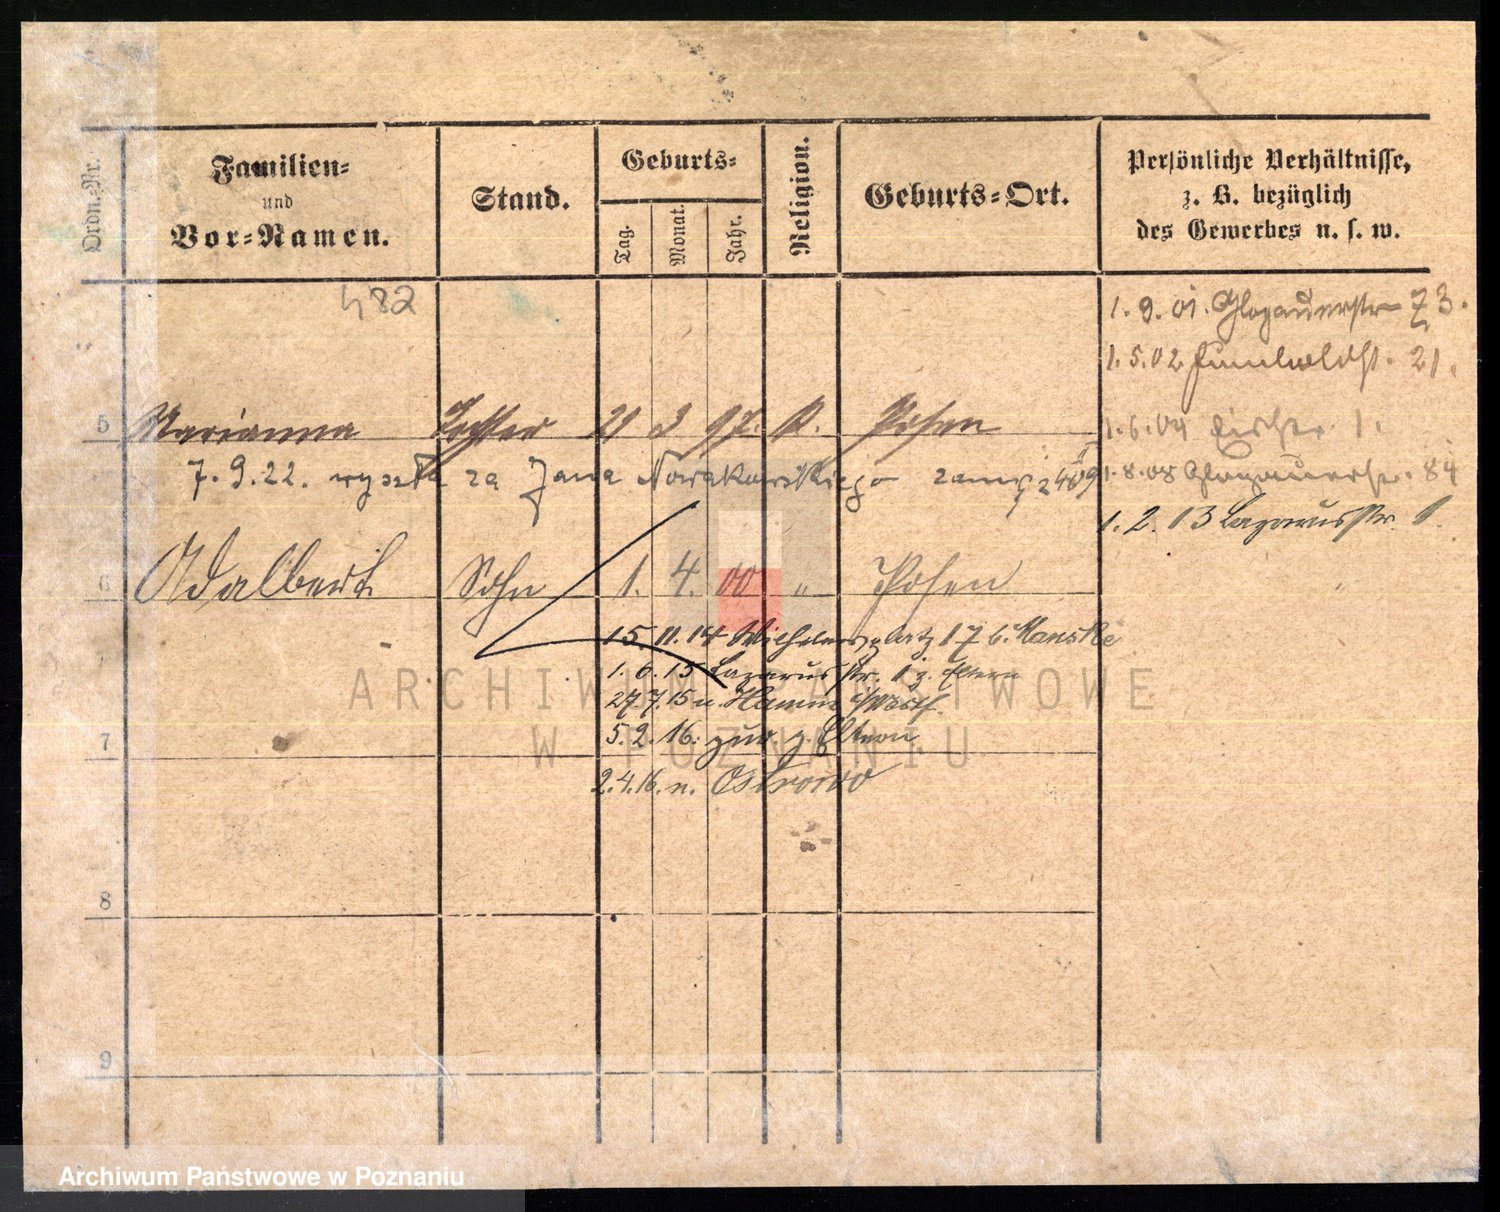 Ordn.-Nr.
Familien-
und
Vor-Namen.
Stand.
Geburts-
Tag.
Monat.
Jahr.
Religion.
Geburts-Ort.
Persönliche Verhältnisse,
z. B. bezüglich
des Gewerbes u. s. w.
482
1. 9. 01. Glogauerstr 73.
1. 5. 02 Humboldtst. 21.
5 Marianna Tochter 21 3 97. K. Posen
1. 6. 04 1.
7. 9. 22. wyszła za Jana Nowakowskiego
1. 8. 08 Glogauerstr. 84
1. 2. 13 Lazarusstr. 1.
6 Adalbert Sohn 1. 4. 00 " Posen
15. 11. 14 Wilhelmsplatz 17 b. Manske
1. 6. 15 Lazarusstr. 1 z. Eltern
27 7. 15 n. Hamm i/Westf.
7
5. 2. 16. zur. z. Eltern
2. 4. 16. n. Ostrowo
8
9
ARCHIWUM PAŃSTWOWE
W POZNANIU
Archiwum Państwowe w Poznaniu